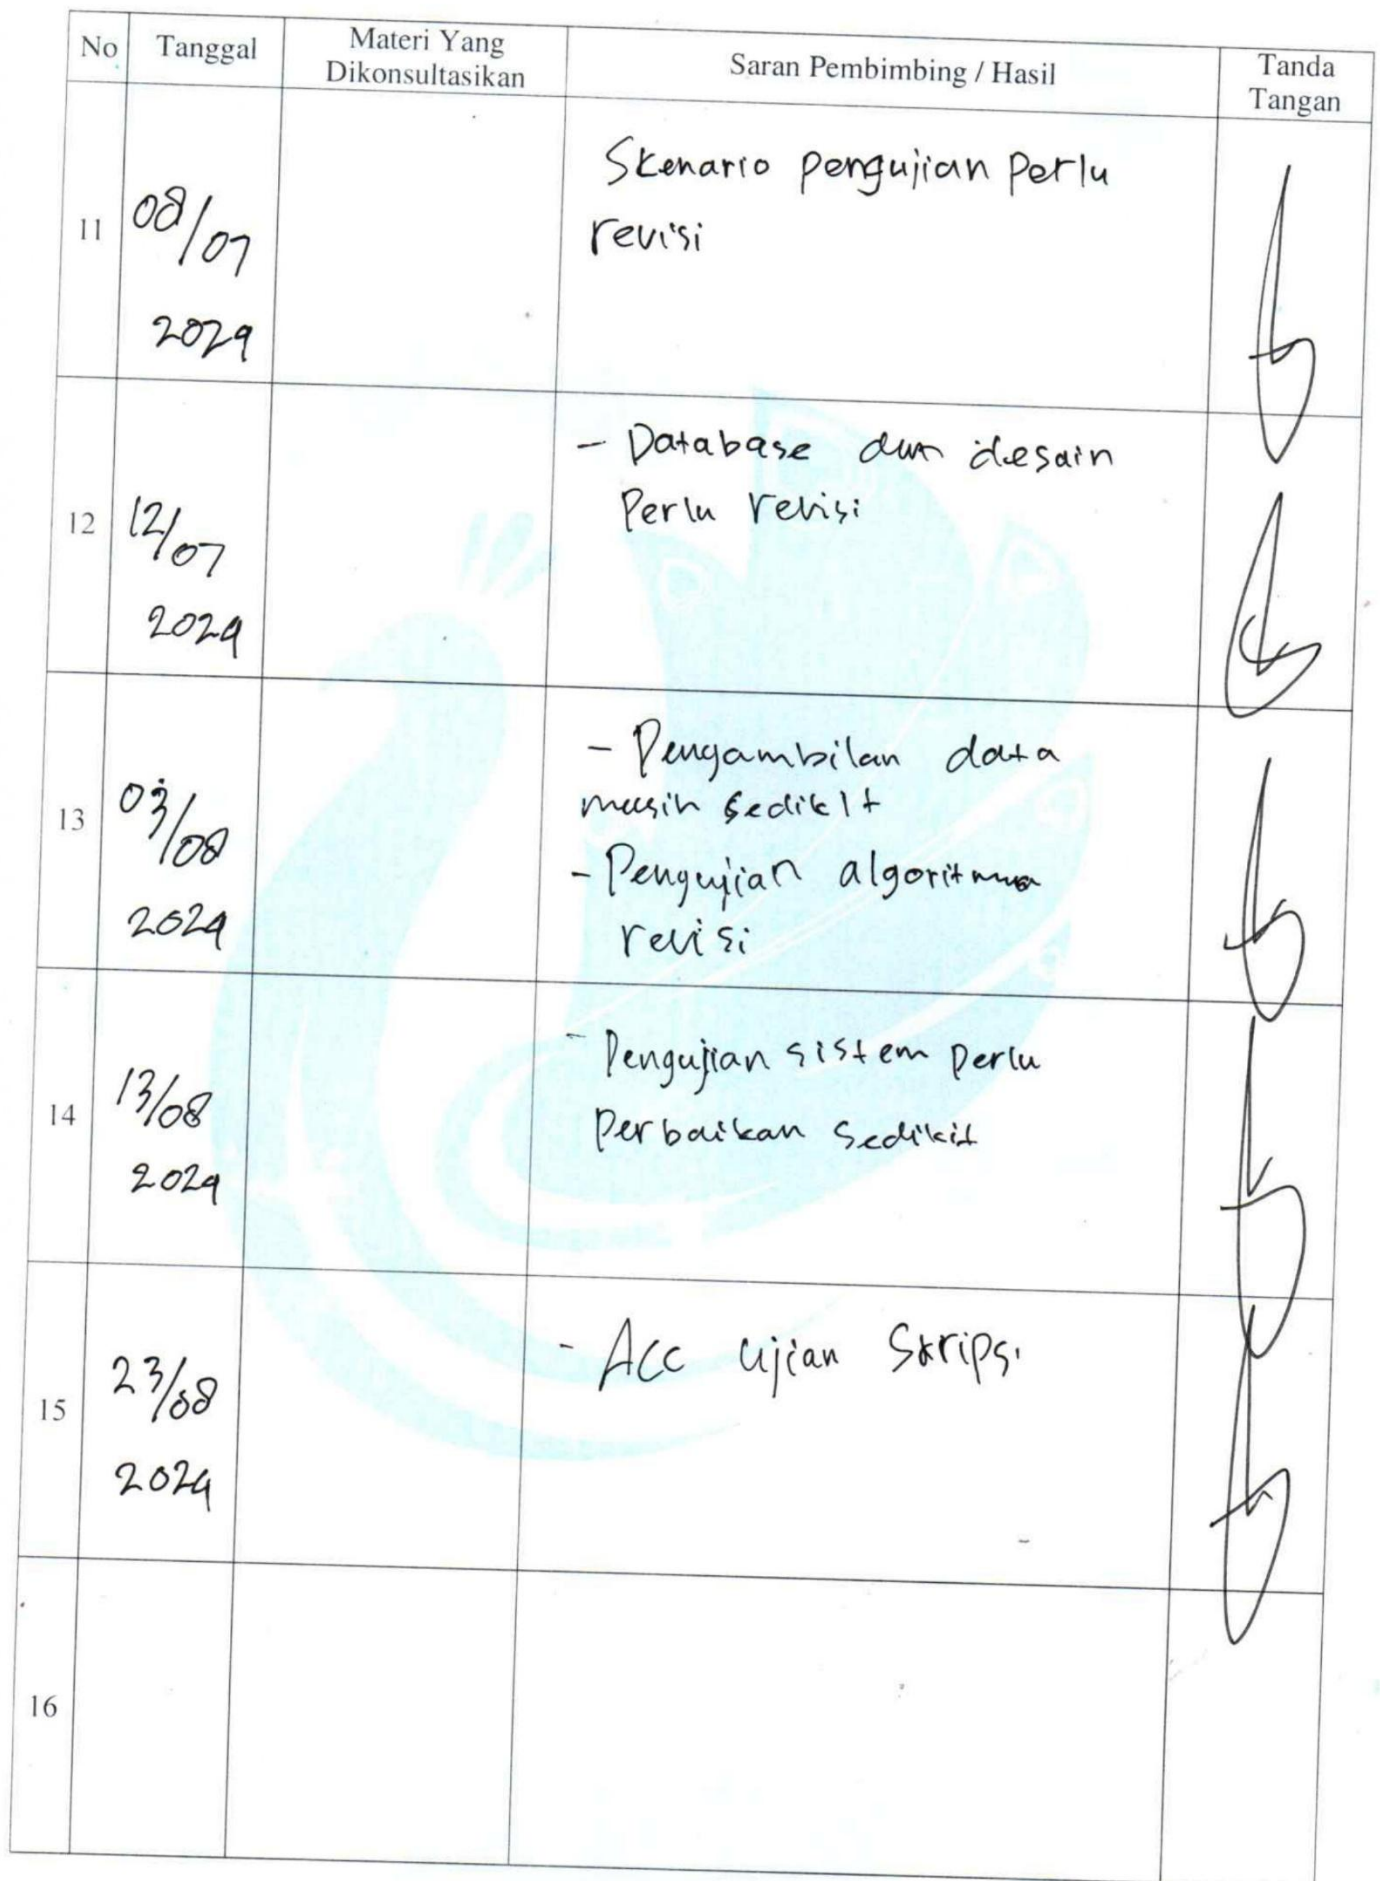 No Tanggal Materi Yang Dikonsultasikan Saran Pembimbing / Hasil Tanda Tangan
11 08/07 2024 Skenario pengujian perlu
revisi
12 12/07 2024 - Database dan desain
perlu revisi
13 03/08 2024 - Pengambilan data
masih sedikit
- Pengujian algoritma
revisi
14 13/08 2024 - Pengujian sistem perlu
perbaikan sedikit
15 23/08 2024 - Acc ujian Skripsi
16